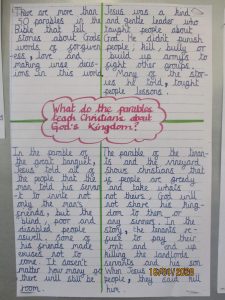 There are more than
50 parables in the
Bible that tell
stories about God's
words of forgiven-
ess, love and
making wise deci-
sions in this world
Jesus was a kind
and gentle leader who
taught people about
God. He did not punish
people, kill, bully or
build up armys to
fight other groups.
Many of the stor-
ies he told, taught
people lessons.
What do the parables
teach Christians about
God's Kingdom?
In the parable of
the great banquet,
Jesus told all of
the people that the
man told his serva-
nt to invite not
only the man's
friends, but the
blind, poor and
disabled people
aswell. Some of
his friends made
excuses not to
come. It doesnt
matter how many go
there will still be
room.
The parable of the tenan-
ts and the vineyard
shows christians that
people are greedy
and take whats
not theirs. God will
not share his king-
dom to them or
any sinners. In the
story, the tenants re-
fuse to pay their
rent and end up
killing the landlords
servants and his son
When Jesus
people, they did kill
him.